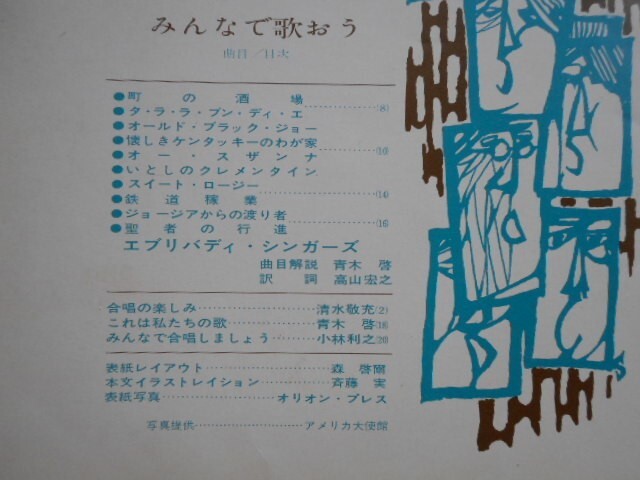 みんなで歌おう
曲目/目次
●町の酒場
●タ・ラ・ラ・ブン・ディ・エ (8)
●オールド・ブラック・ジョー
●懐しきケンタッキーのわが家
●オー・スザンナ (10)
●いとしのクレメンタイン
●スイート・ロージー
●鉄道稼業 (14)
●ジョージアからの渡り者
●聖者の行進 (16)
エブリバディ・シンガーズ
曲目解説 青木 啓
訳詞 高山宏之
合唱の楽しみ 清水敬充(2)
これは私たちの歌 青木 啓(18)
みんなで合唱しましょう 小林利之(20)
表紙レイアウト 森 啓爾
本文イラストレイション 斉藤 実
表紙写真 オリオン・プレス
写真提供 アメリカ大使館